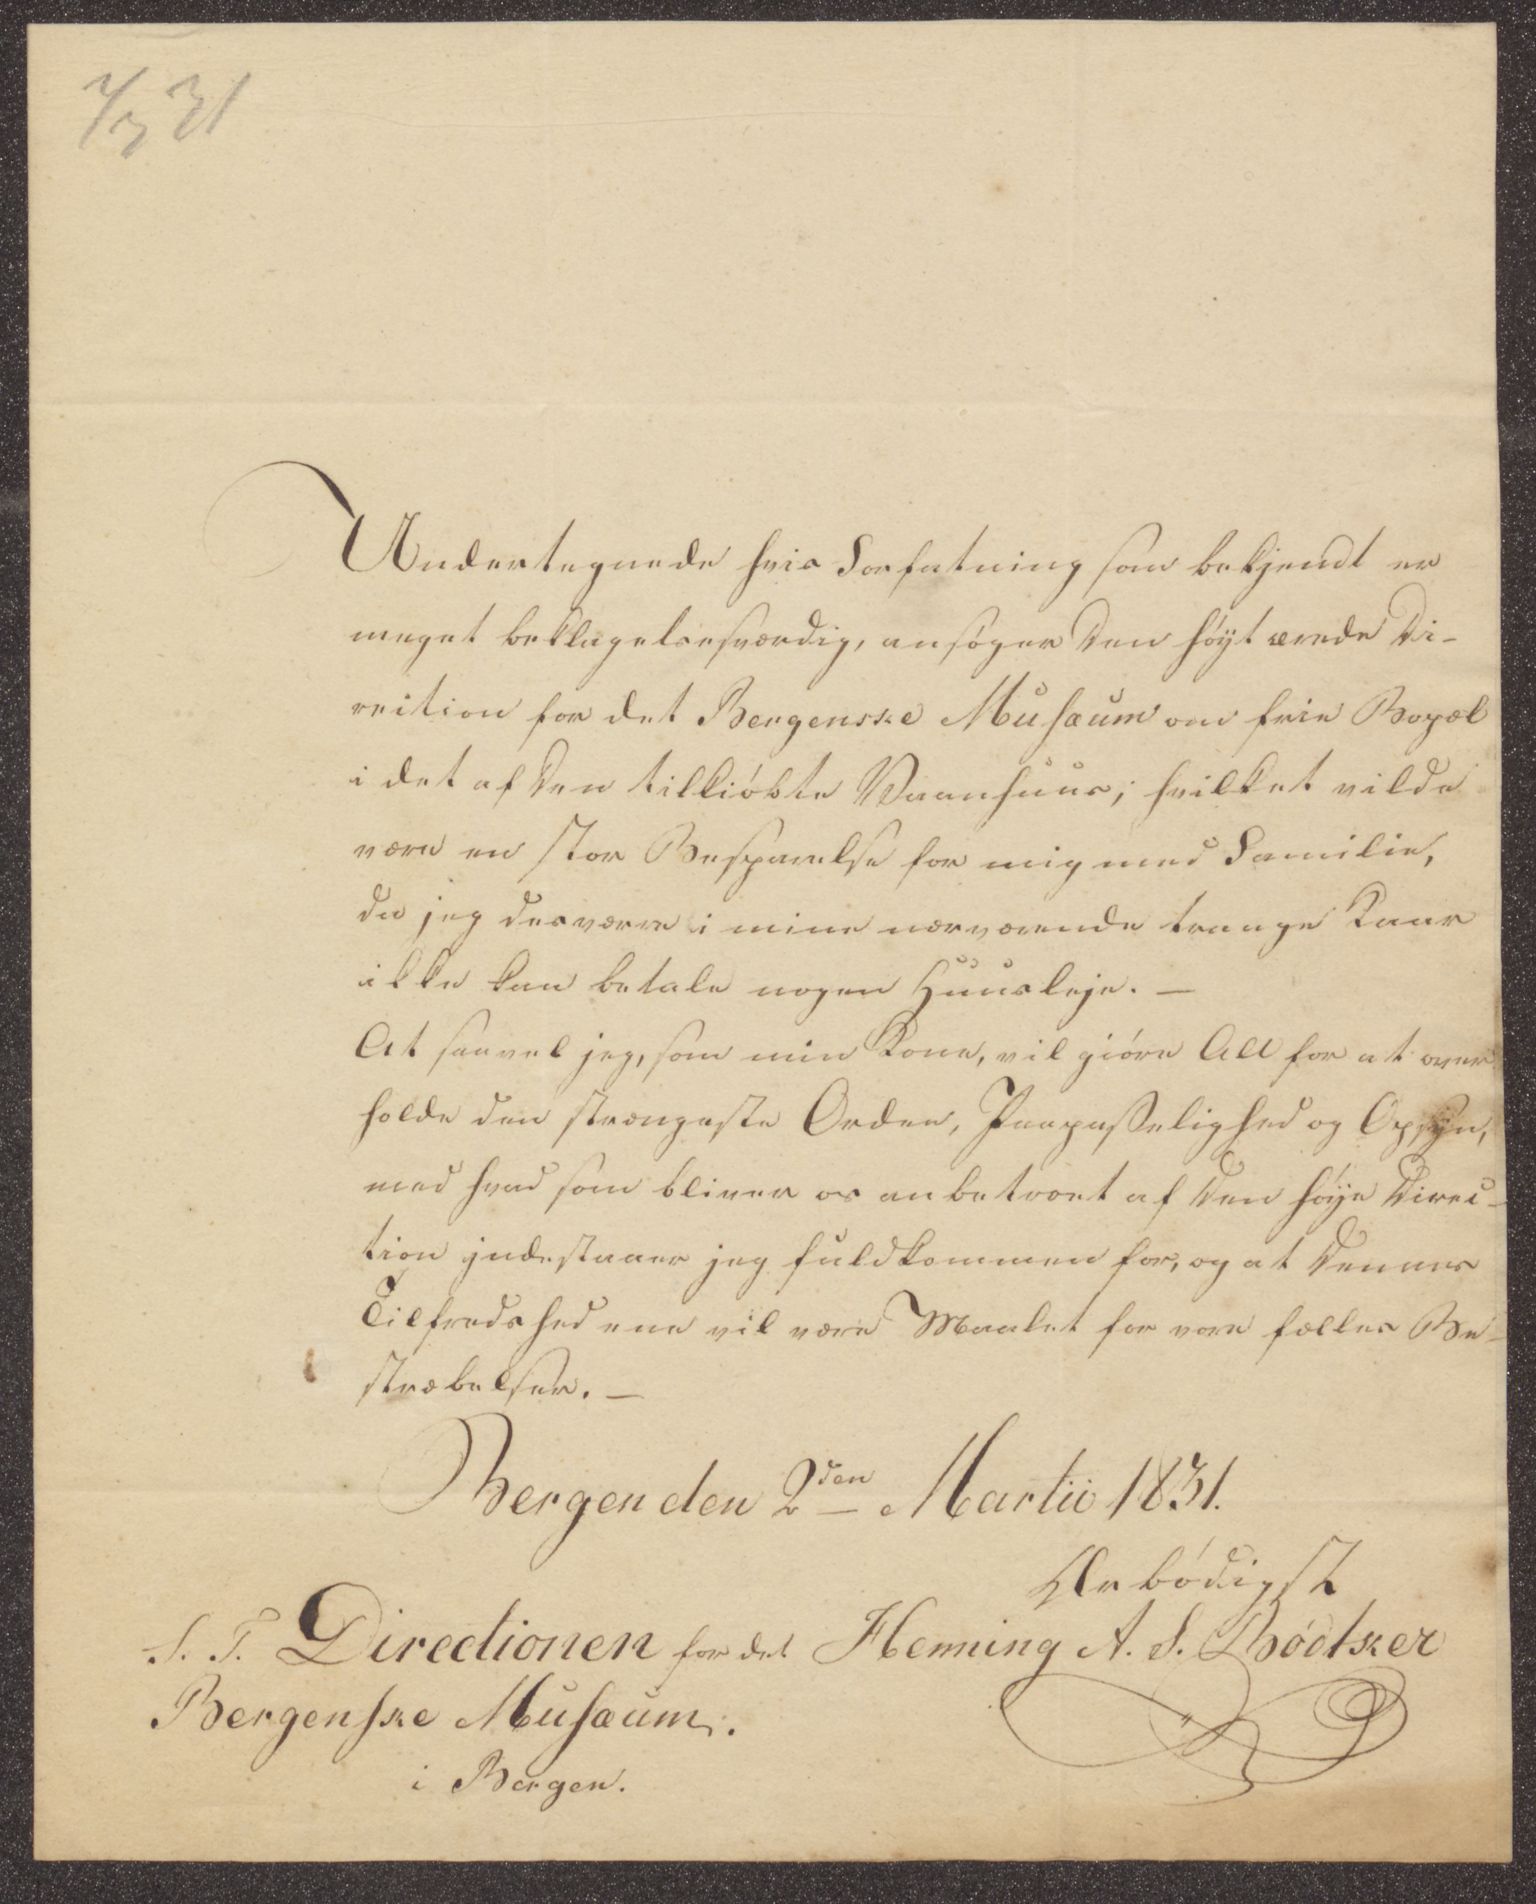 7/3 31
Undertegnede hvis Forfatning som bekjendt er
meget beklagelsesværdig, ansøger Den høyt ærede Di-
rection for det Bergenske Musæum om frie Bopæl
i det af Den tilkiøbte Vaanhuus; hvilket vilde
være en stor Besparelse for mig med Familie,
da jeg desværre i mine nærværende trange Kaar
ikke kan betale nogen Huusleje. —
At saavel jeg, som min Kone, vil giøre Alt for at over
holde den strængeste Orden, Paapasselighed og Opsyn,
med hvad som bliver os anbetroet af Den høye Direc-
tion indestaaer jeg fuldkommen for, og at Dennes
Tilfredshed ene vil være Maalet for vore fælles Be-
stræbelser. —
Bergen den 2den Martii 1831.
Ærbødigst
Henning A. S. Bødtker
S. T. Directionen for det
Bergenske Musæum.
i Bergen.